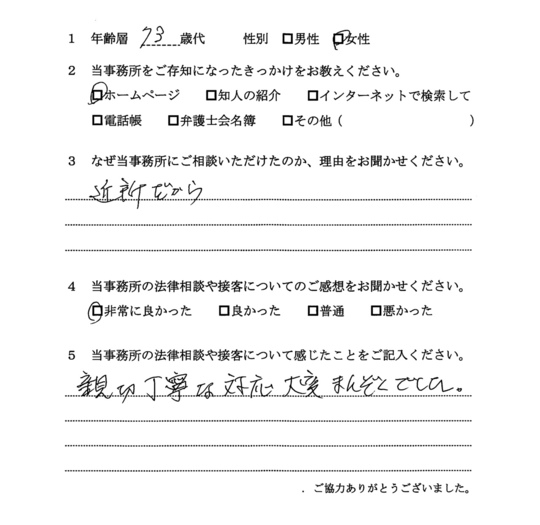 1 年齢層 73 歳代 性別 □男性 □女性
2 当事務所をご存知になったきっかけをお教えください。
□ホームページ □知人の紹介 □インターネットで検索して
□電話帳 □弁護士会名簿 □その他( )
3 なぜ当事務所にご相談いただけたのか、理由をお聞かせください。
近所だから
4 当事務所の法律相談や接客についてのご感想をお聞かせください。
□非常に良かった □良かった □普通 □悪かった
5 当事務所の法律相談や接客について感じたことをご記入ください。
親切丁寧な対応大変まんぞくでした。
. ご協力ありがとうございました。